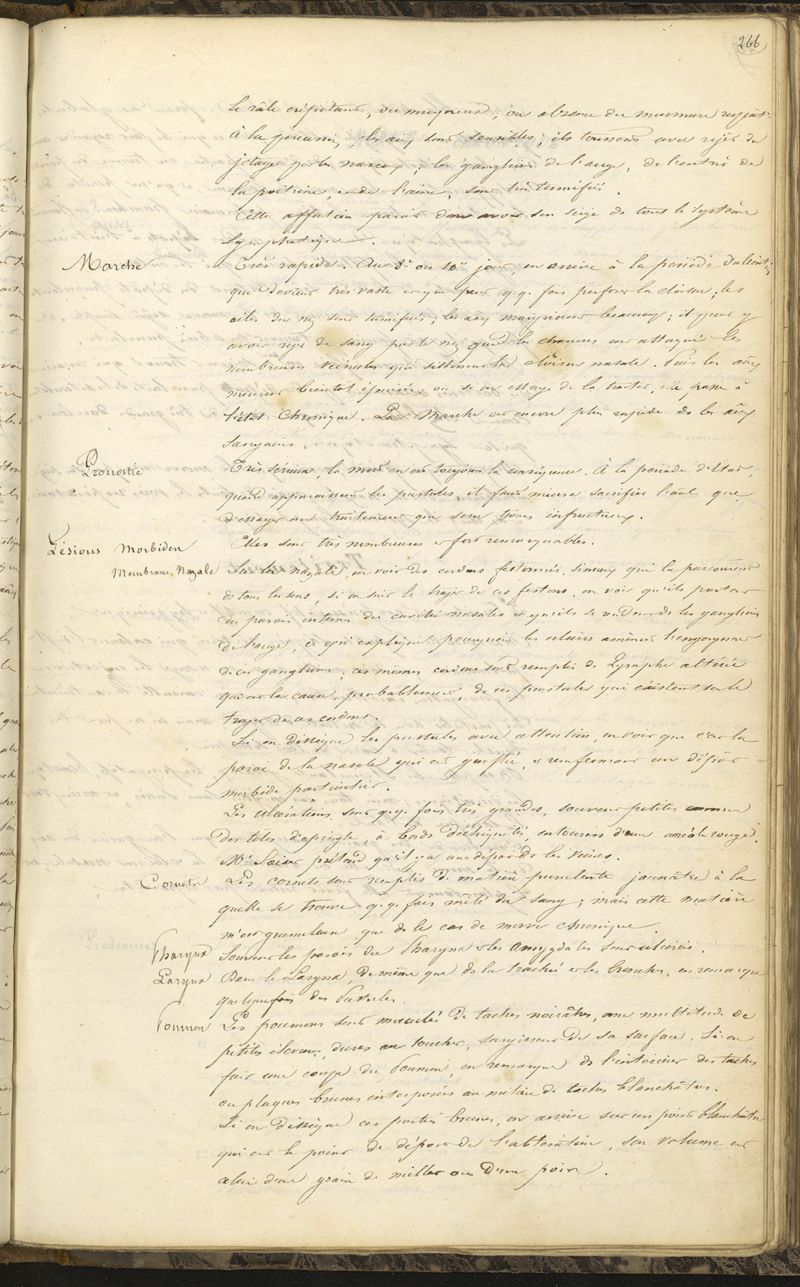 266
le râle crépitant, ou muqueux, ou absence du murmure respirat.
à la percussion, les aux sont sensibles; ils toussent avec rejet de
jetage par les naseaux; les ganglions de l'auge, de l'entrée de
la poitrine, et de l'aine, sont tuméfiés.
Cette affection parait avoir son siége ds tout le système
lymphatique.
Marche Très rapide. Au 8e ou 10e jour, on arrive à la période
qui devient très vaste et qui peut q.q. fois perforer la cloison; les
ailes du nez sont tuméfiées; les aux maigrissent beaucoup; il peut y
avoir rejet de sang par le nez quand les chancres ont attaqué les
nombreuses veinules qui sillonnent la cloison nasale. Puis les aux
meurent bientôt épuisés, ou si on essaye de les traiter, elle passe à
l'état Chronique. La Marche est encore plus rapide ds les aux
sanguins.
Pronostic Très sérieux, la mort en est toujours la conséquence. À la période d'état,
quand apparaissent les pustules, il faut mieux sacrifier l'aal que
d'essayer un traitement qui sera tjours infructueux.
Lésions Morbides Elles sont très nombreuses et fort remarquables.
Membrane Nazale Sur la nazale, on voit des cordons festonnés, sinueux qui la parcourent
ds tous les sens, si on suit le trajet de ces festons, on voit qu'ils partent
des parois internes des cavités nasales et qu'ils se rendent ds les ganglions
de l'auge, ce qui explique pourquoi les ulcères amènent l'engorgement
de ces ganglions; ces mêmes cordons sont remplis de Lymphe altérée
qui est la cause, probablement, de ces pustules qui existent sur le
trajet de ces cordons.
Si on dissèque les pustules avec attention, on voit que c'est la
paroi de la nasale qui est gonflée, et renfermant un dépôt
morbide particulier.
Les ulcérations sont q.q. fois très grandes, souvent petites comme
des têtes d'épingle, à bords déchiquetés, entourés d'une aréole rouge.
Mr prétend qu'il y a un dépôt ds les veines.
Cornets Les cornets sont remplis de matière purulente jaunâtre à la
quelle se trouve q.q. fois mêlé du sang; mais cette matière
n'est grumeleuse que ds le cas de morve chronique.
Pharynx Souvent les parois du Pharynx et les amygdales sont ulcérés.
Larynx Dans le Larynx, de même que ds la trachée et les bronches, on remarque
quelquefois des Pustules.
Poumon Les poumons sont maculés de taches noirâtres, une multitude de
petits élevures, dures au toucher, surgissent de sa surface. Si on
fait une coupe du Poumon, on remarque ds l'intérieur des taches
ou plaques brunes interposées au milieu de taches blanchâtres.
Si on dissèque ces parties brunes, on arrive sur un point blanchâtre
qui est le point de départ de l'altération, son volume est
celui d'un grain de millet ou d'un pois.